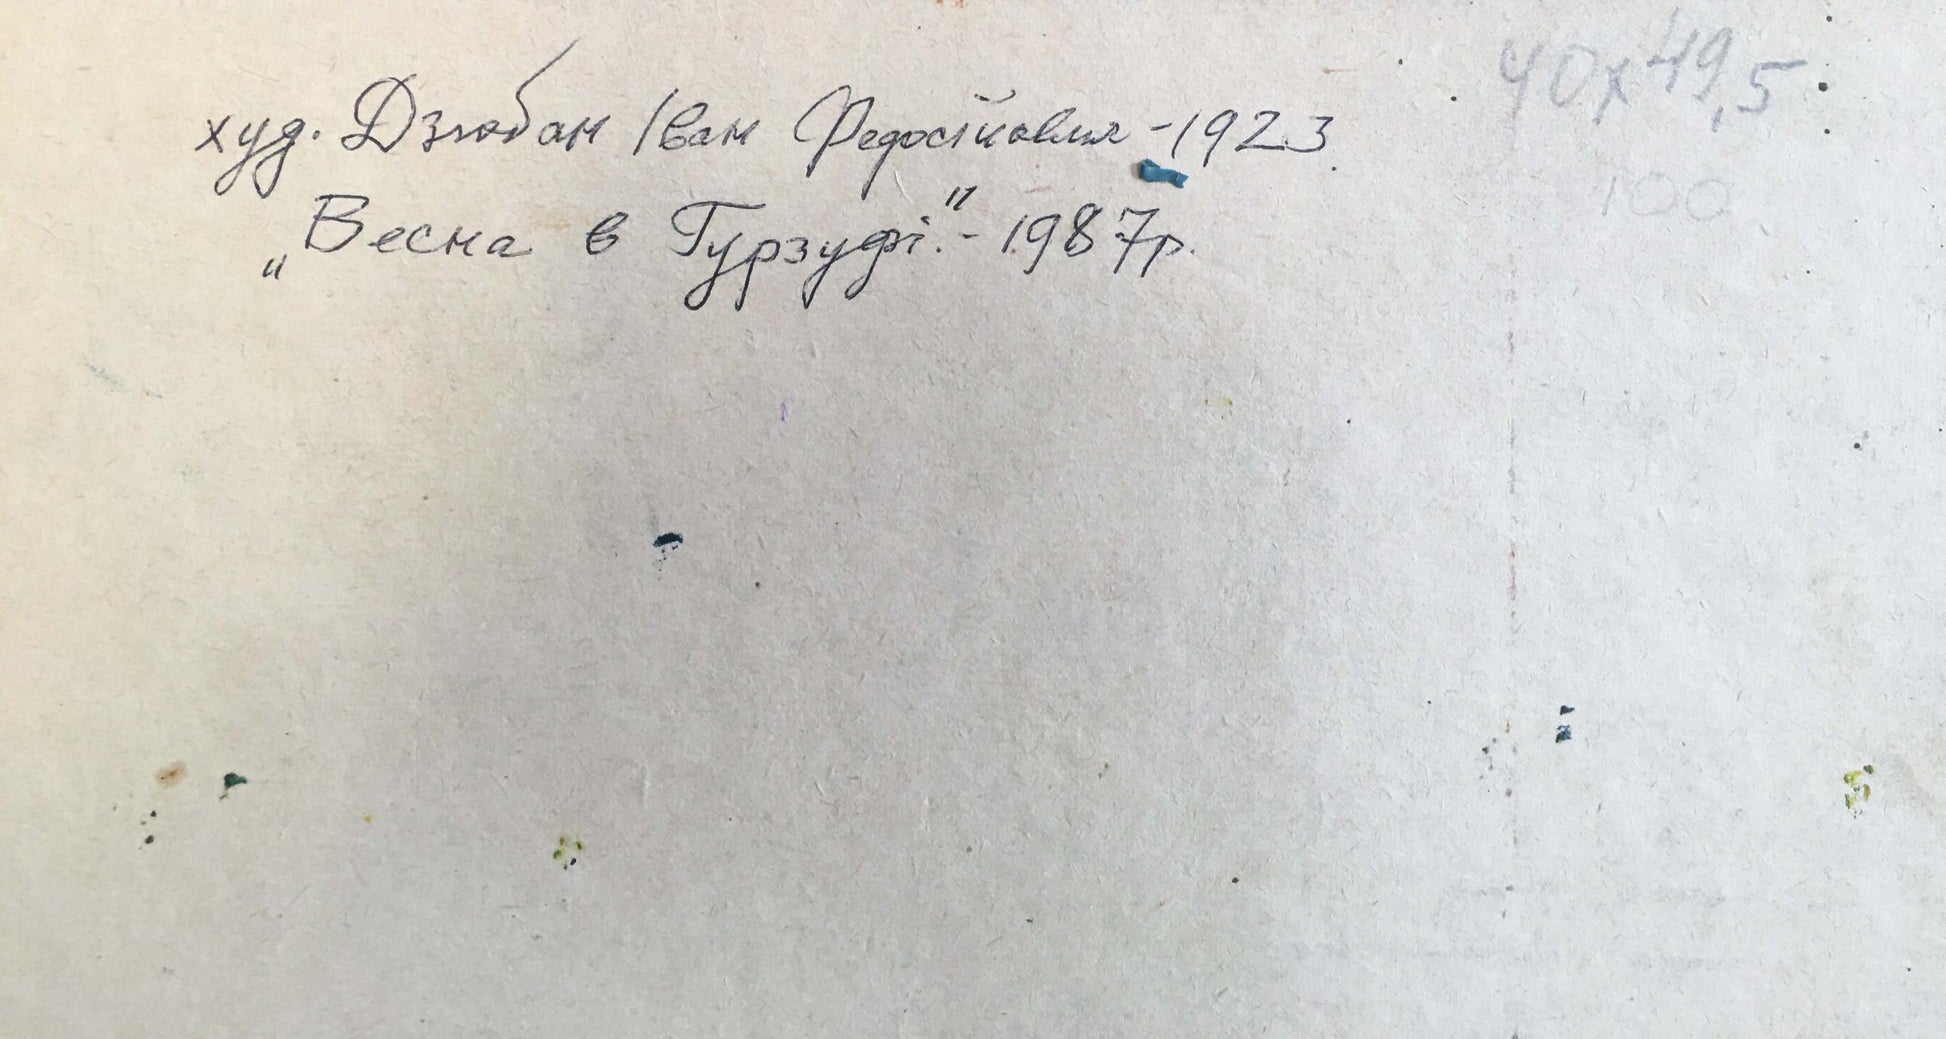 худ. Дзюбан Іван Федосійович - 1923
„Весна в Гурзуфі." - 1987р.
40х49,5
100